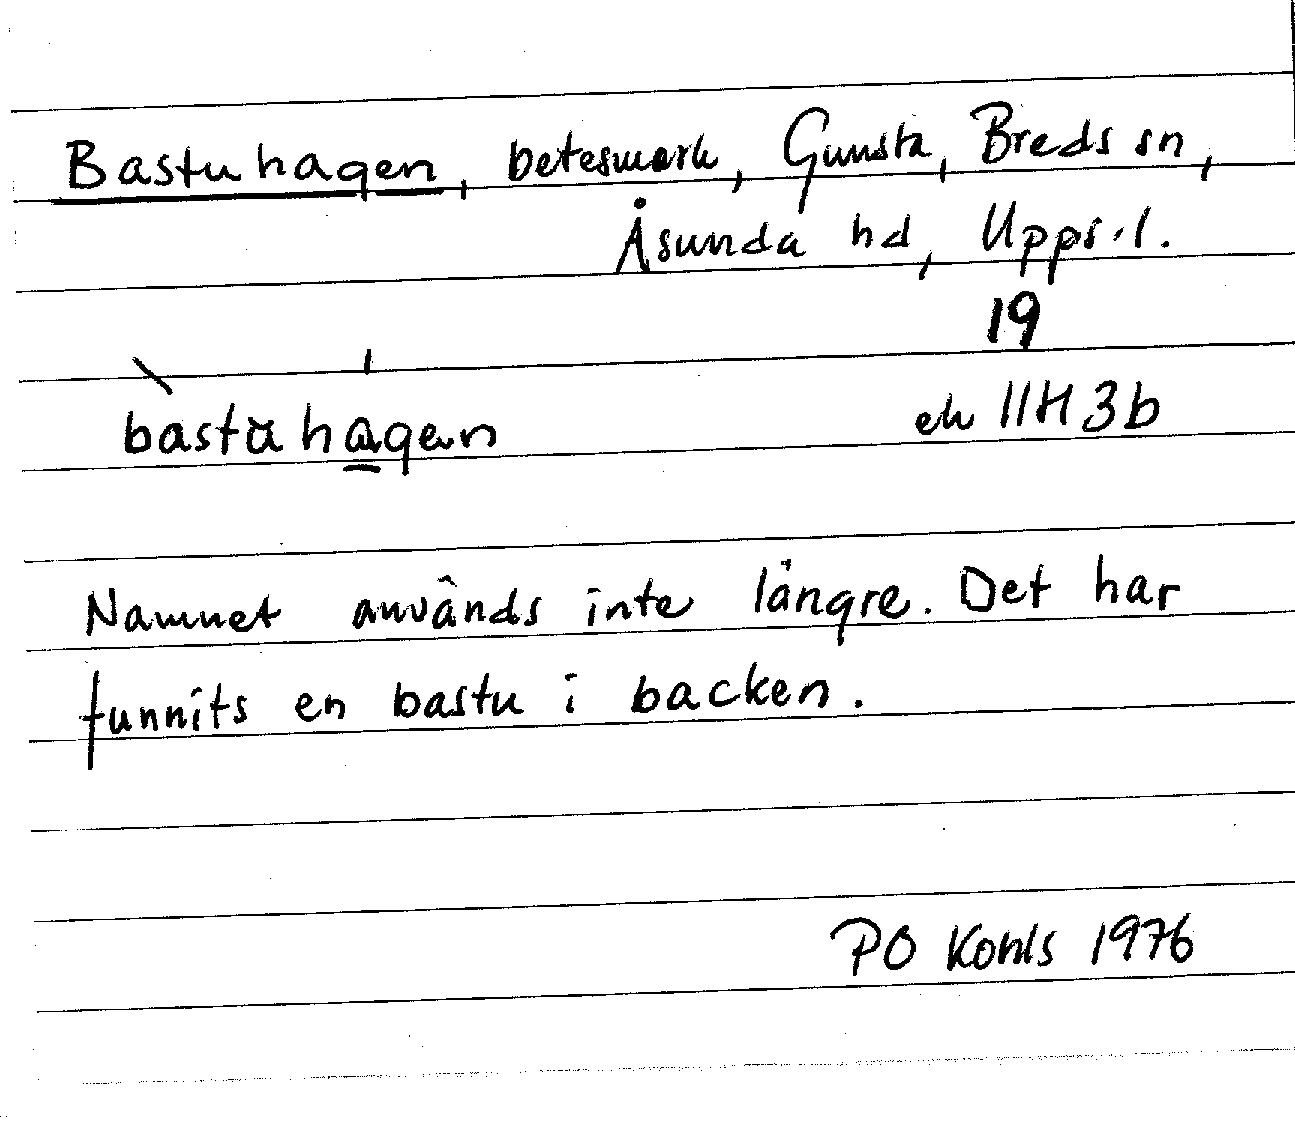 Bastuhagen, betesmark, Gunsta, Breds sn,
Åsunda hd, Upps.l.
19
bastuhagen ek 11H 3b
Namnet används inte längre. Det har
funnits en bastu i backen.
PO Kohls 1976